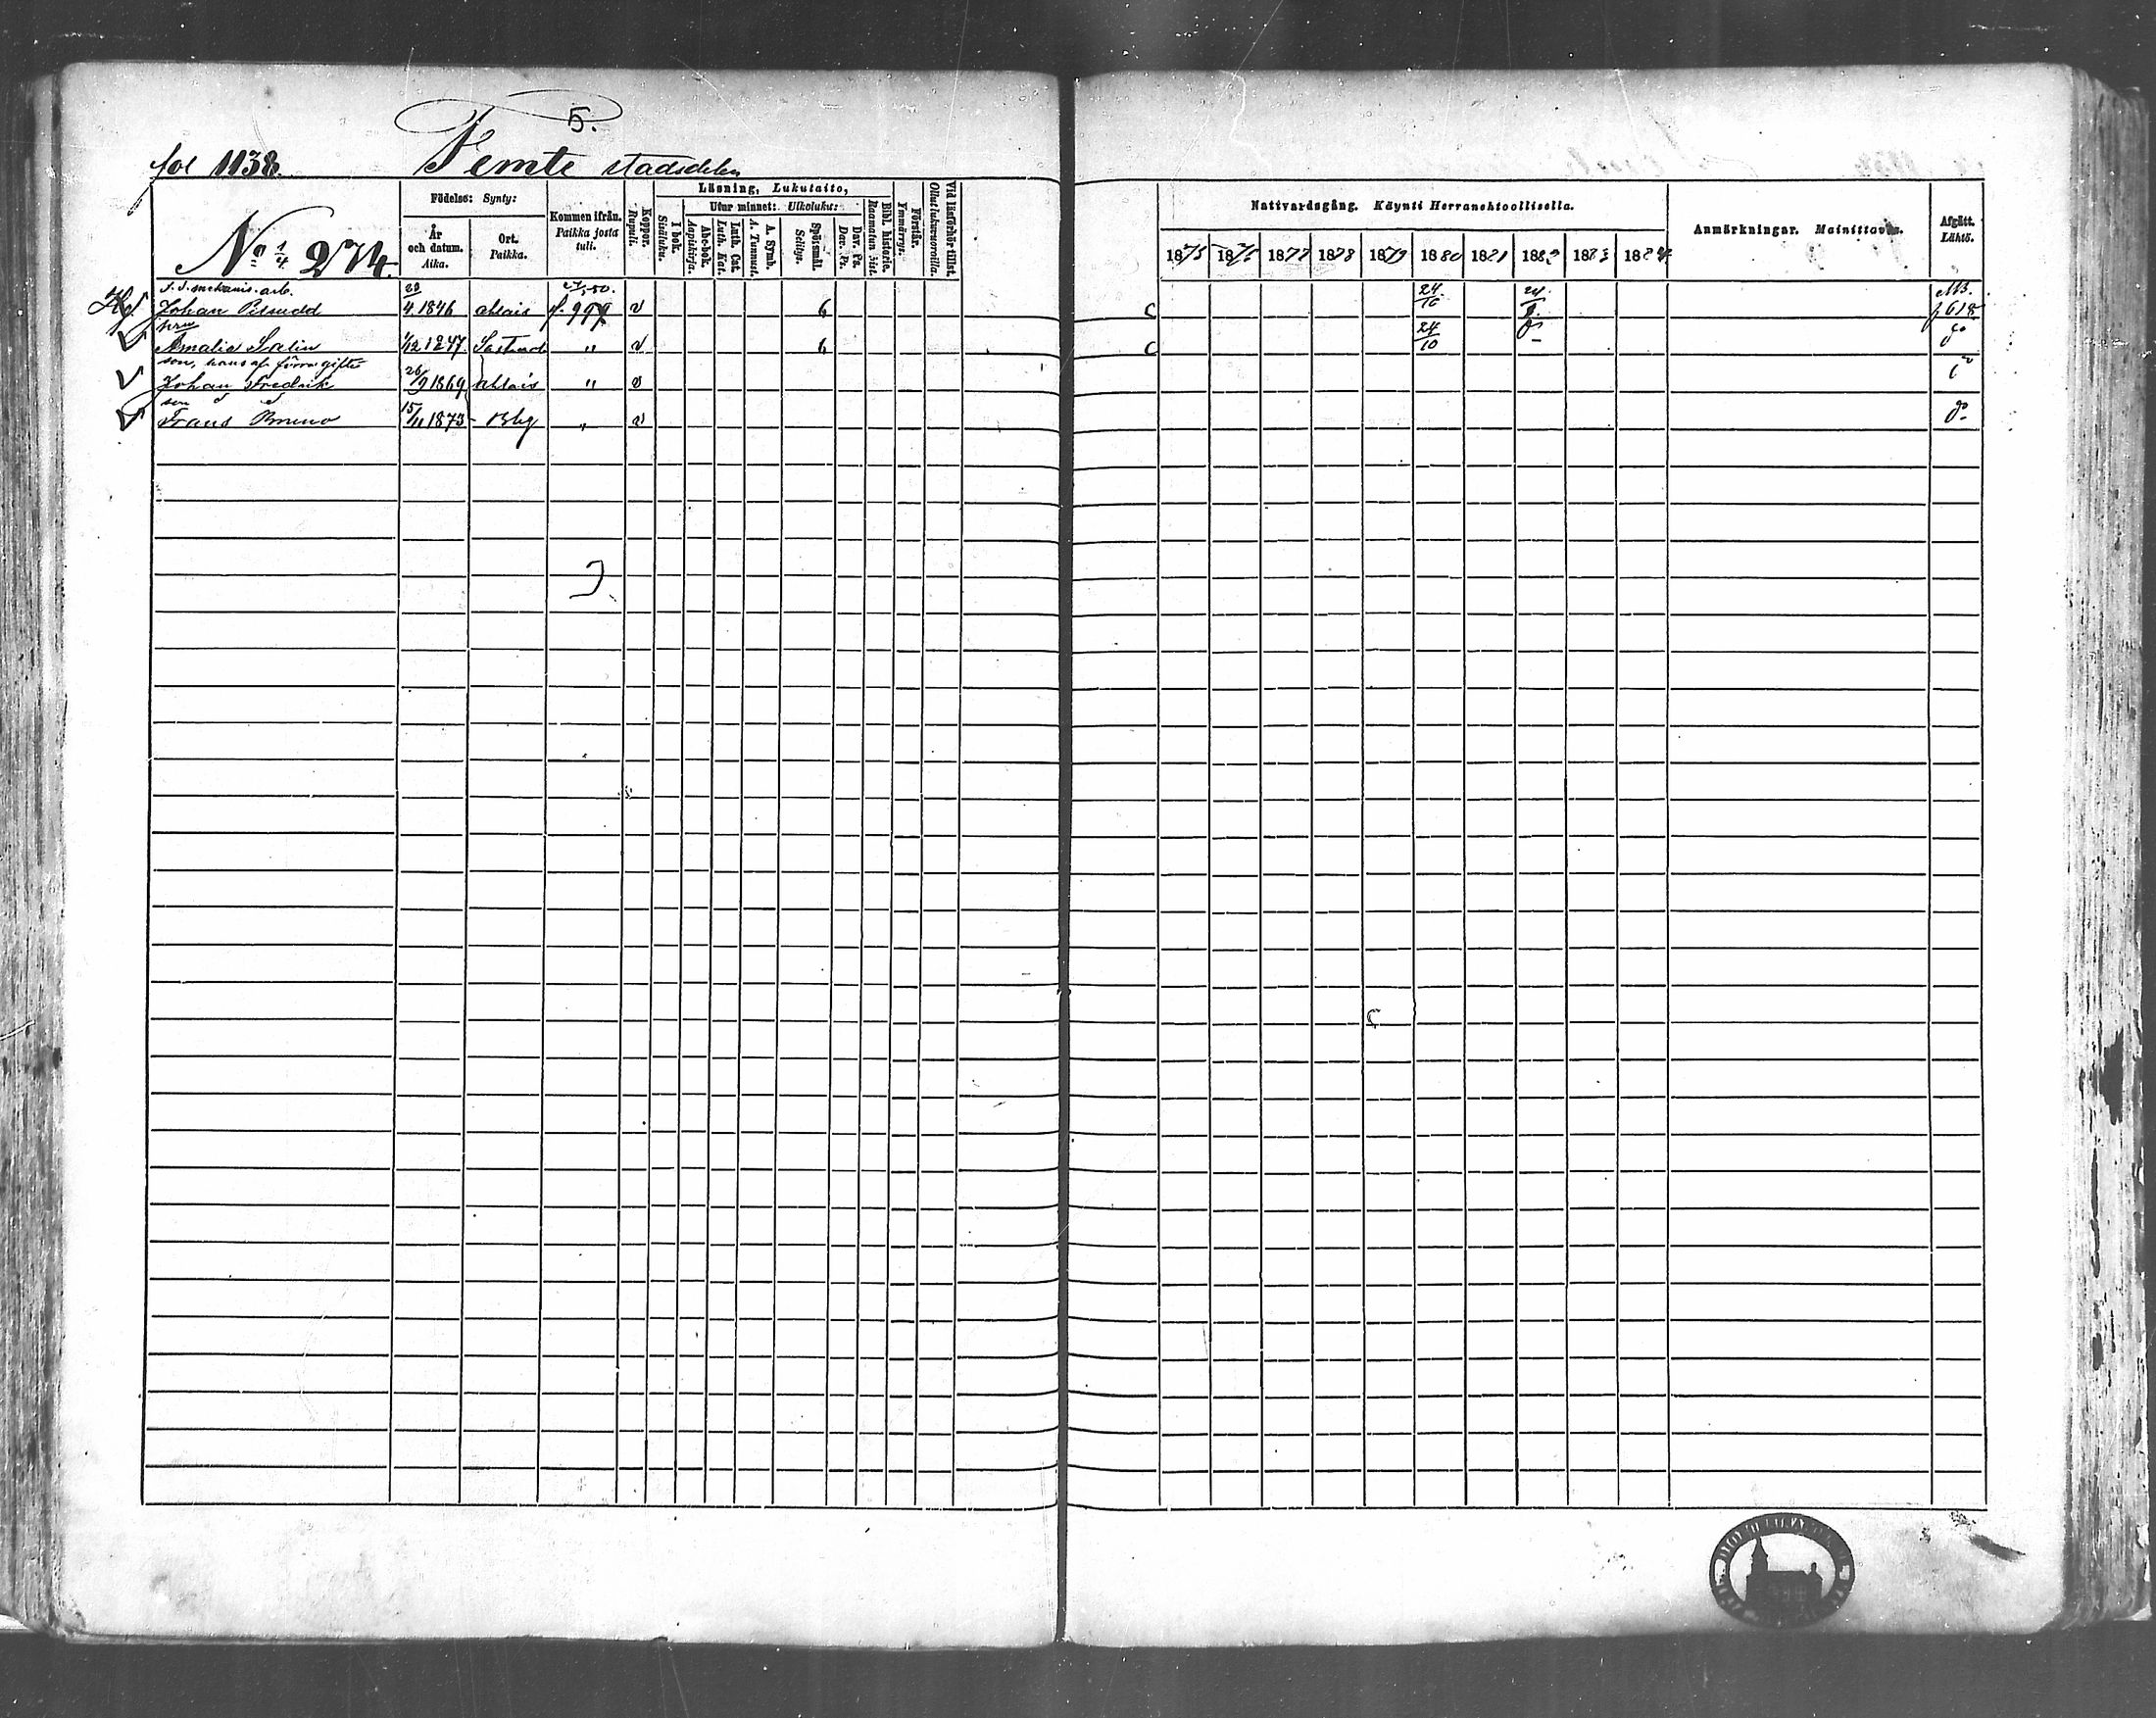 5.
fol 1138.
Femte stadsdelen
No 1/4 274.
Födelse: Synty:
År och datum. Aika.
Ort. Paikka.
Kommen ifrån. Paikka josta tuli.
Koppor. Rupuli.
Läsning, Lukutaito,
I bok. Sisäluku.
Utur minnet: Ulkoluku:
Abc-bok. Aapiskirja.
Luth. Cat. Luth. Kat.
A. Symb. A. Tunnust.
Spörsmål. Selitys.
Dav. Ps. Dav. Ps.
Bibl. historie. Raamatun hist.
Förstår. Ymmärrys.
Vid läsförhör tillst. Ollut lukuvuoroilla.
Nattvardsgång. Käynti Herranehtoollisella.
1875 1876 1877 1878 1879 1880 1881 1882 1883 1884
Anmärkningar. Mainittavia.
Afgått. Lähtö.
mekanis. arb.
Johan 4 1846 f. 997 v 6 c 24/10 f 618
Amalia Salin 1/12 1847 " v 6 c 24/10 do
son, hans af förra gifte
Johan Fredrik 26/9 1869 Ahlais " v
son d d
Frans Bruno 15/11 1873 Bbg " v do